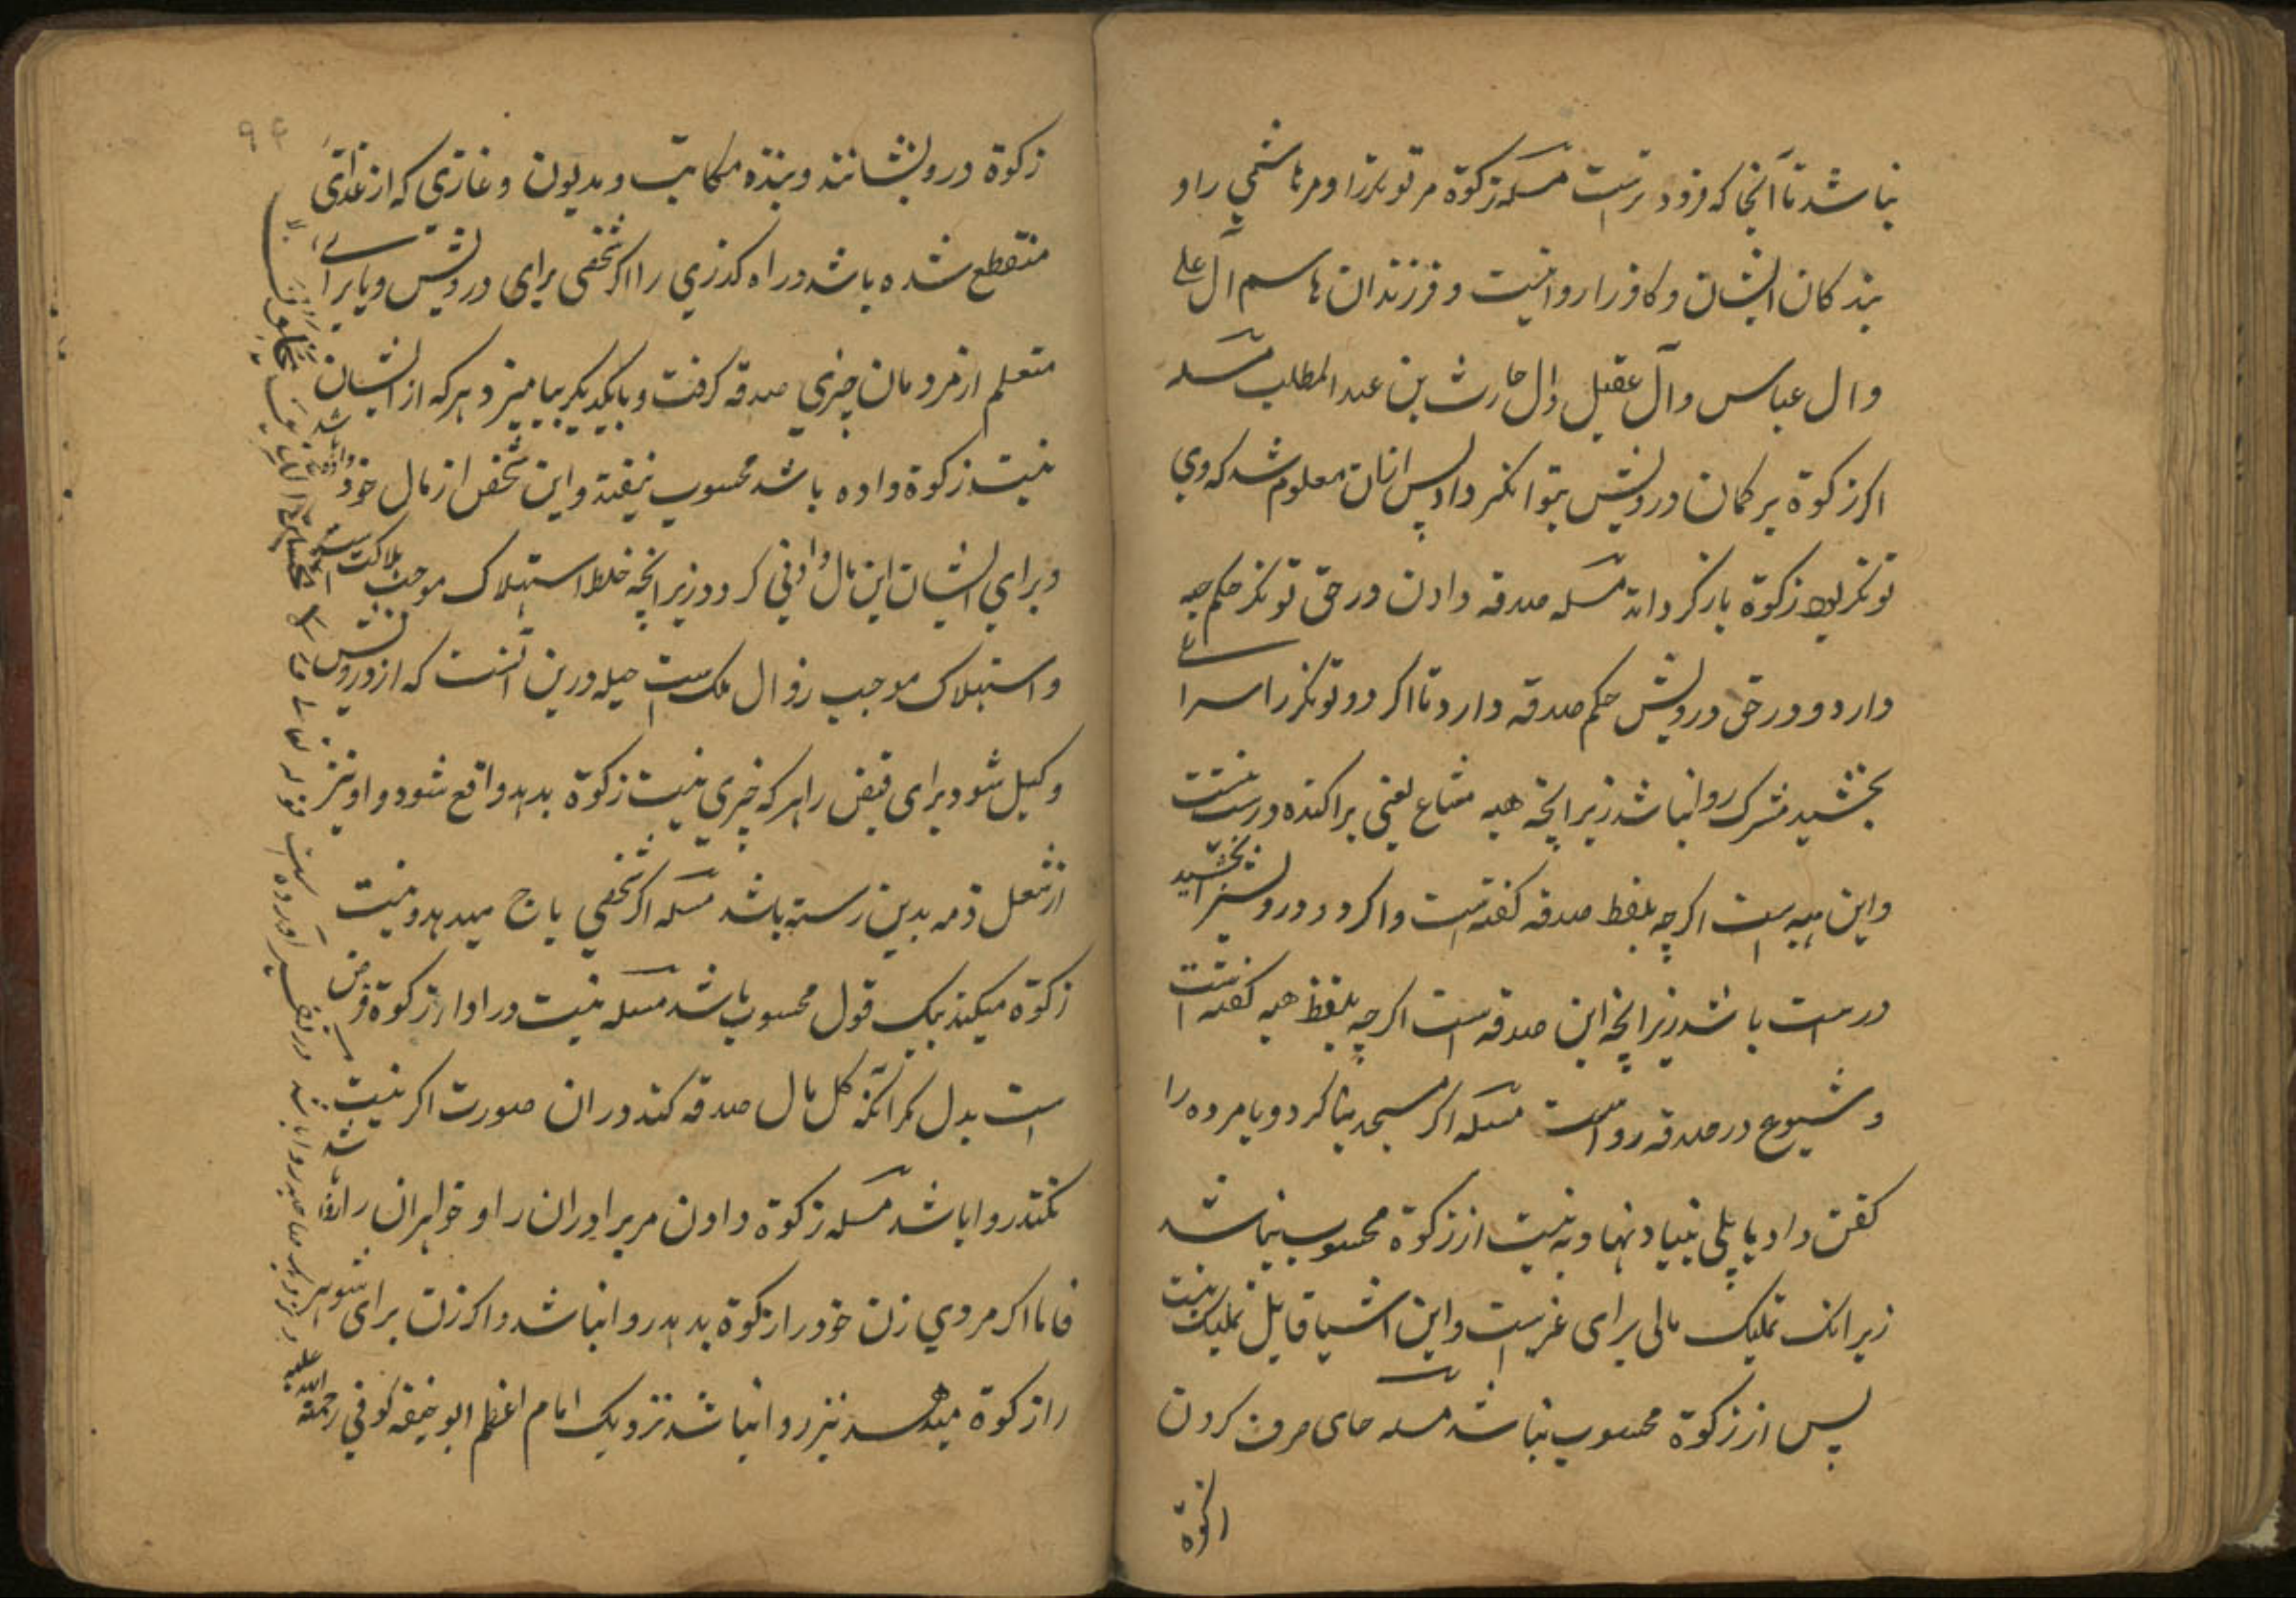 نباشد تا آنجا که فرود ترست مسئله زکوة مر توانکر را و مر هاشمی را و
بندکان ایشان و کافر را روا نیست و فرزندان هاشم آل علی
وال عباس وآل عقیل وال حارث بن عبد المطلب مسئله
اکر زکوة بر کمان درویش بتوانکر داد پس ازان معلوم شد که وی
توانکر بود زکوة باز کرداند مسئله صدقه دادن در حق توانکر حکم هبه
دارد و در حق درویش حکم صدقه دارد تا اکر دو توانکر را سرای
بخشید مشترک روا نباشد زیرانچه هبه مشاع یعنی پراکنده درست نیست
واین هبه است اکرچه بلفظ صدقه کفته است واکر دو درویش را بخشید
درست باشد زیرانچه این صدقه است اکرچه بلفظ هبه کفته است
و شیوع در صدقه رواست مسئله اکر مسجد بنا کرد و یا مرده را
کفن داد یا پلی بنیاد نهاد به نیت از زکوة محسوب نباشد
زیرانک تملیک مالی برای غیرست واین اشیا قابل تملیک نیست
پس از زکوة محسوب نباشد مسئله جای صرف کردن
زکوة
۹۴
زکوة درویشانند و بنده مکاتب و مدیون و غازی که از غزای
منقطع شده باشد و راه کذری را اکر شخصی برای درویش ویا برای
متعلم از مردمان چیزی صدقه کرفت و بایکدیکر بیامیزد هر که از ایشان
بنیت زکوة داده باشد محسوب نیفتد واین شخص از مال خود داده باشد
و برای ایشان این مال وافی کردد زیرانچه خلط استهلاک موجب هلاکت است
و استهلاک موجب زوال ملک ست حیله درین آنست که از درویش
وکیل شود برای قبض را هر که چیزی بنیت زکوة بدهد واقع شود و او نیز
از شغل ذمه بدین رسته باشد مسئله اکر شخصی باج میدهد و نیت
زکوة میکند بیک قول محسوب باشد مسئله نیت در اداء زکوة فرض
است بدل مکر آنکه کل مال صدقه کند دران صورت اکر نیت
نکند روا باشد مسئله زکوة دادن مر برادران را و خواهران را روا باشد
فاما اکر مردی زن خود را زکوة بدهد روا نباشد واکر زن برای شوهر
را زکوة میدهد نیز روا نباشد نزدیک امام اعظم ابو حنیفه کوفی رحمة الله علیه